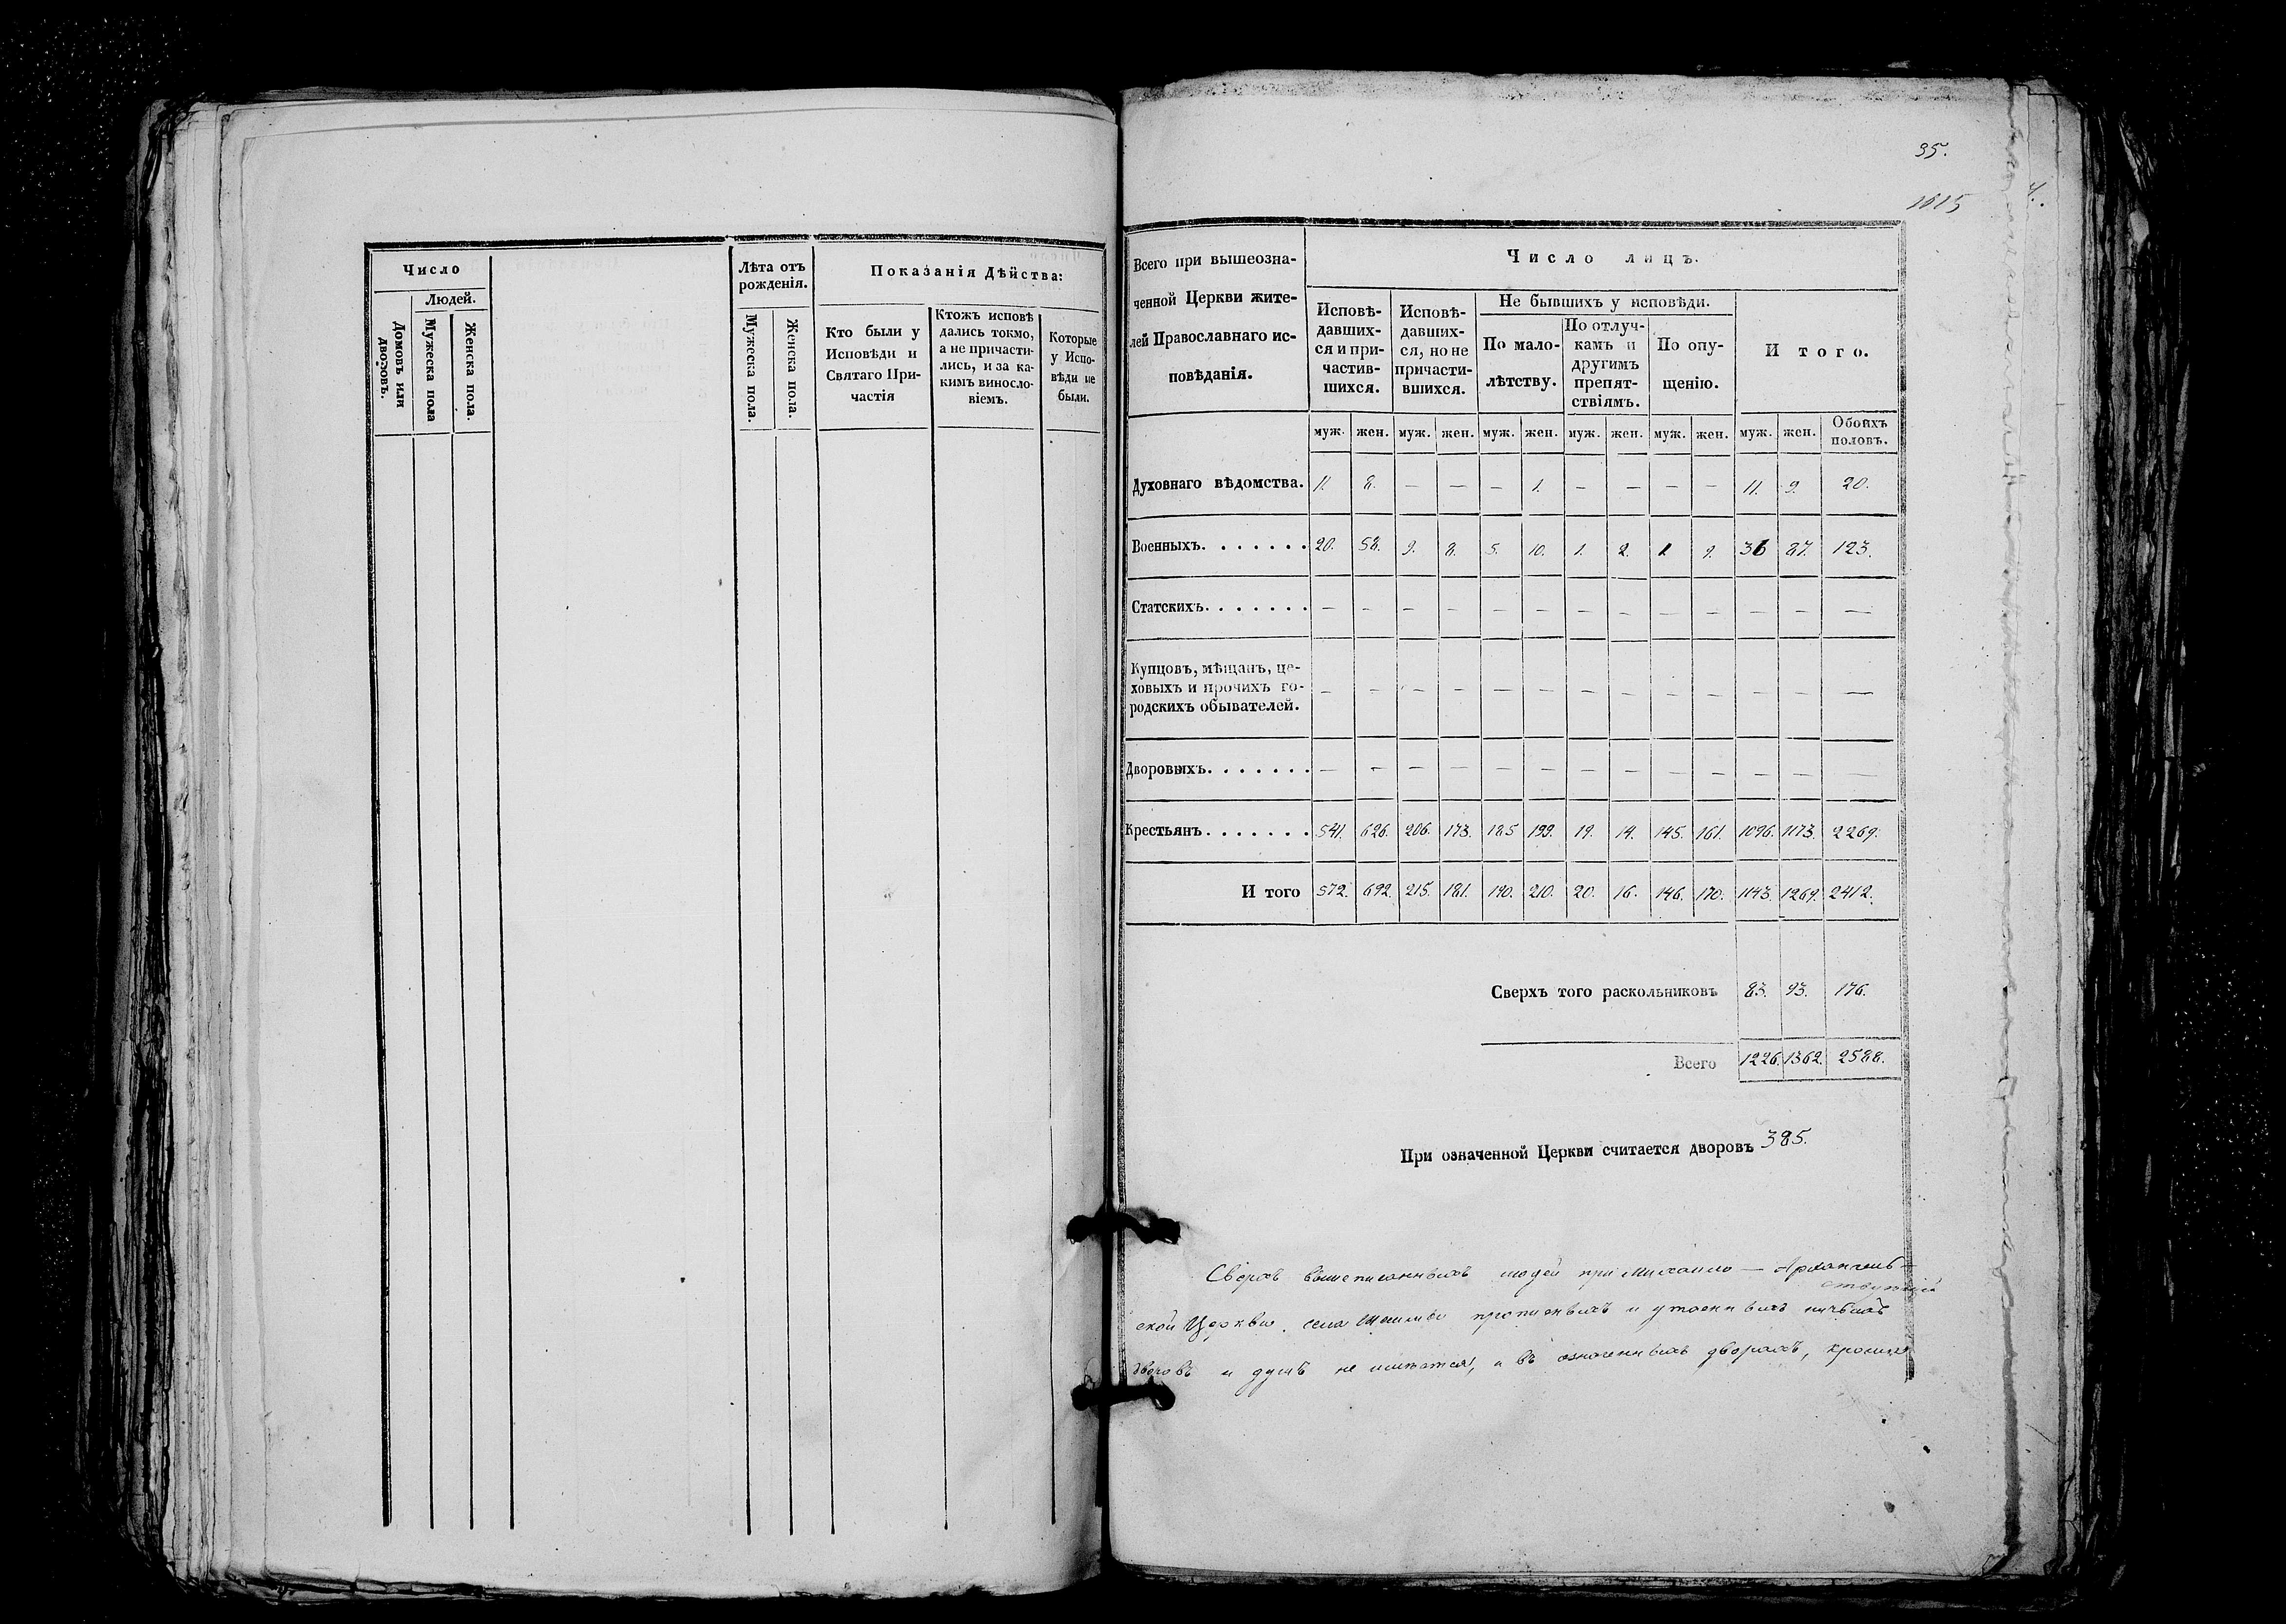 Число
Людей.
Домовъ или дворовъ.
Мужеска пола
Женска пола.
Лѣта отъ
рожденія.
Мужеска пола.
Женска пола.
Показанія Дѣйства:
Кто были у
Исповѣди и
Святаго При-
частія
Ктожъ исповѣ
дались токмо,
а не причасти-
лись, и за ка-
кимъ винословіемъ.
Которые
у Испо-
вѣди не
были.
95.
1615
4.
Всего при вышеозна-
ченной Церкви жите-
лей Православнаго ис-
повѣданія.
Число лицъ.
Исповѣ-
давших-
ся и при-
частив-
шихся.
Исповѣ-
давших-
ся, но не
причасти-
вшихся.
Не бывшихъ у исповѣди.
По мало-
лѣтству.
По отлуч-
камъ и
другимъ
препят-
ствіямъ.
По опу-
щенію.
И того.
муж. жен. муж. жен. муж. жен. муж. жен. муж. жен. муж. жен. Обоихъ половъ.
Духовнаго вѣдомства. 11. 8. — — — 1. — — — — 11. 9. 20.
Военныхъ. . . . . . . 20. 58. 9. 8. 5. 10. 1. 2. 1 9. 36 87. 123.
Статскихъ. . . . . . . — — — — — — — — — — — — —
Купцовъ, мѣщанъ, це-
ховыхъ и прочихъ го-
родскихъ обывателей. — — — — — — — — — — — — —
Дворовыхъ. . . . . . . — — — — — — — — — — — — —
Крестьянъ. . . . . . . 541. 626. 206. 173. 185 199. 19. 14. 145. 161. 1096. 1173. 2269.
И того 572. 692. 215. 181. 190. 210. 20. 16. 146. 170. 1143. 1269. 2412.
Сверхъ того раскольниковъ 83. 93. 176.
Всего 1226. 1362. 2588.
При означенной Церкви считается дворовъ 385.
Сверхъ вышеписанныхъ людей при Михаило — Архангель-
ской Церкви села прописныхъ и утаенныхъ
дворовъ и душъ не имѣется, и въ означенныхъ дворахъ, кромѣ